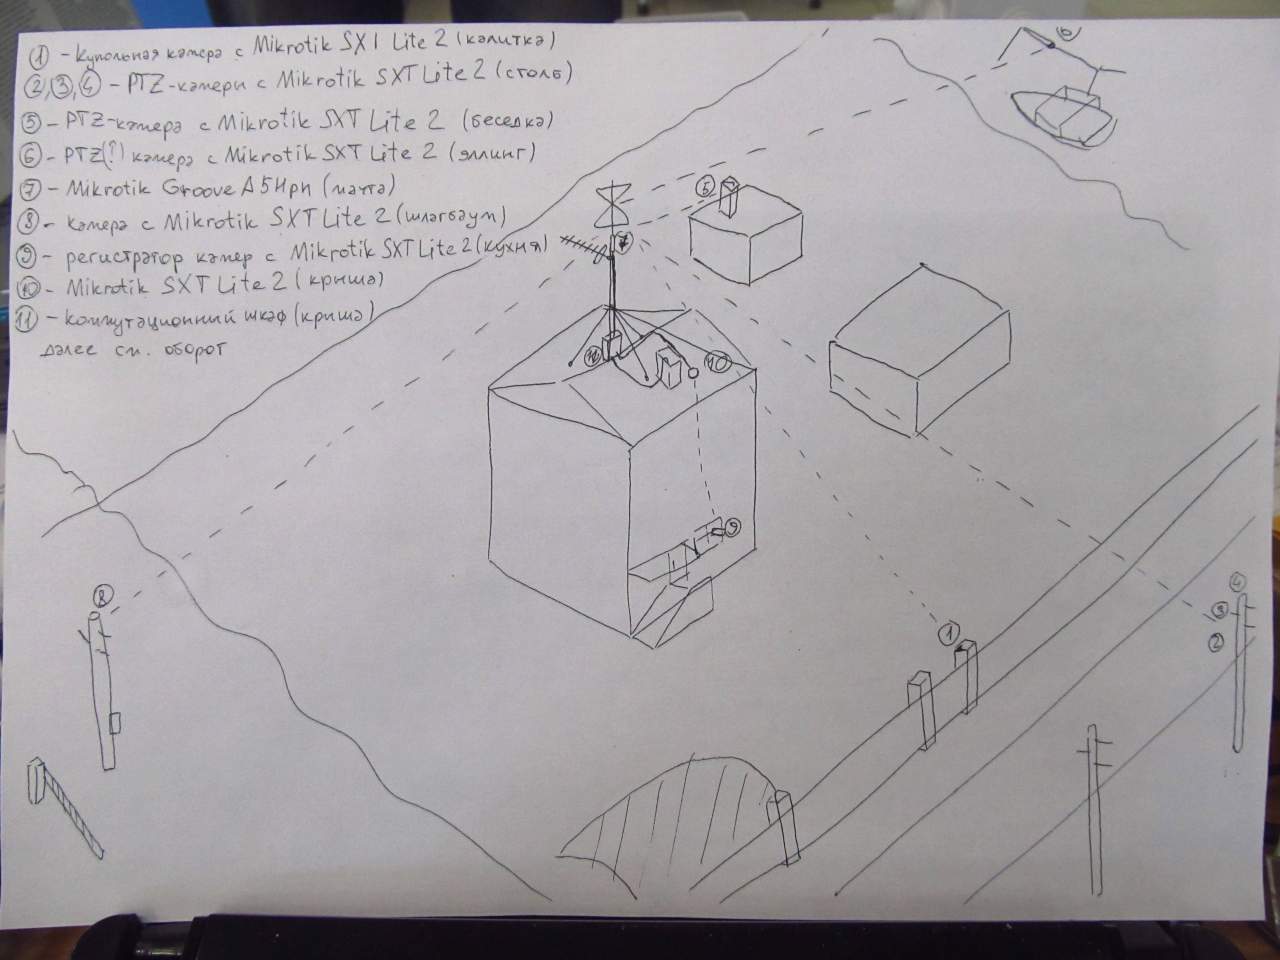 ① - Купольная камера с Mikrotik SXT Lite 2 (калитка)
②,③,④ - PTZ-камеры с Mikrotik SXT Lite 2 (столб)
⑤ - PTZ-камера с Mikrotik SXT Lite 2 (беседка)
⑥ - PTZ(?) камера с Mikrotik SXT Lite 2 (эллинг)
⑦ - Mikrotik Groove A5Hpn (мачта)
⑧ - камера с Mikrotik SXT Lite 2 (шлагбаум)
⑨ - регистратор камер с Mikrotik SXT Lite 2 (кухня)
⑩ - Mikrotik SXT Lite 2 (крыша)
⑪ - коммутационный шкаф (крыша)
далее см. оборот
⑥
⑤
⑦
⑪
⑩
⑨
⑧
①
④
③
②